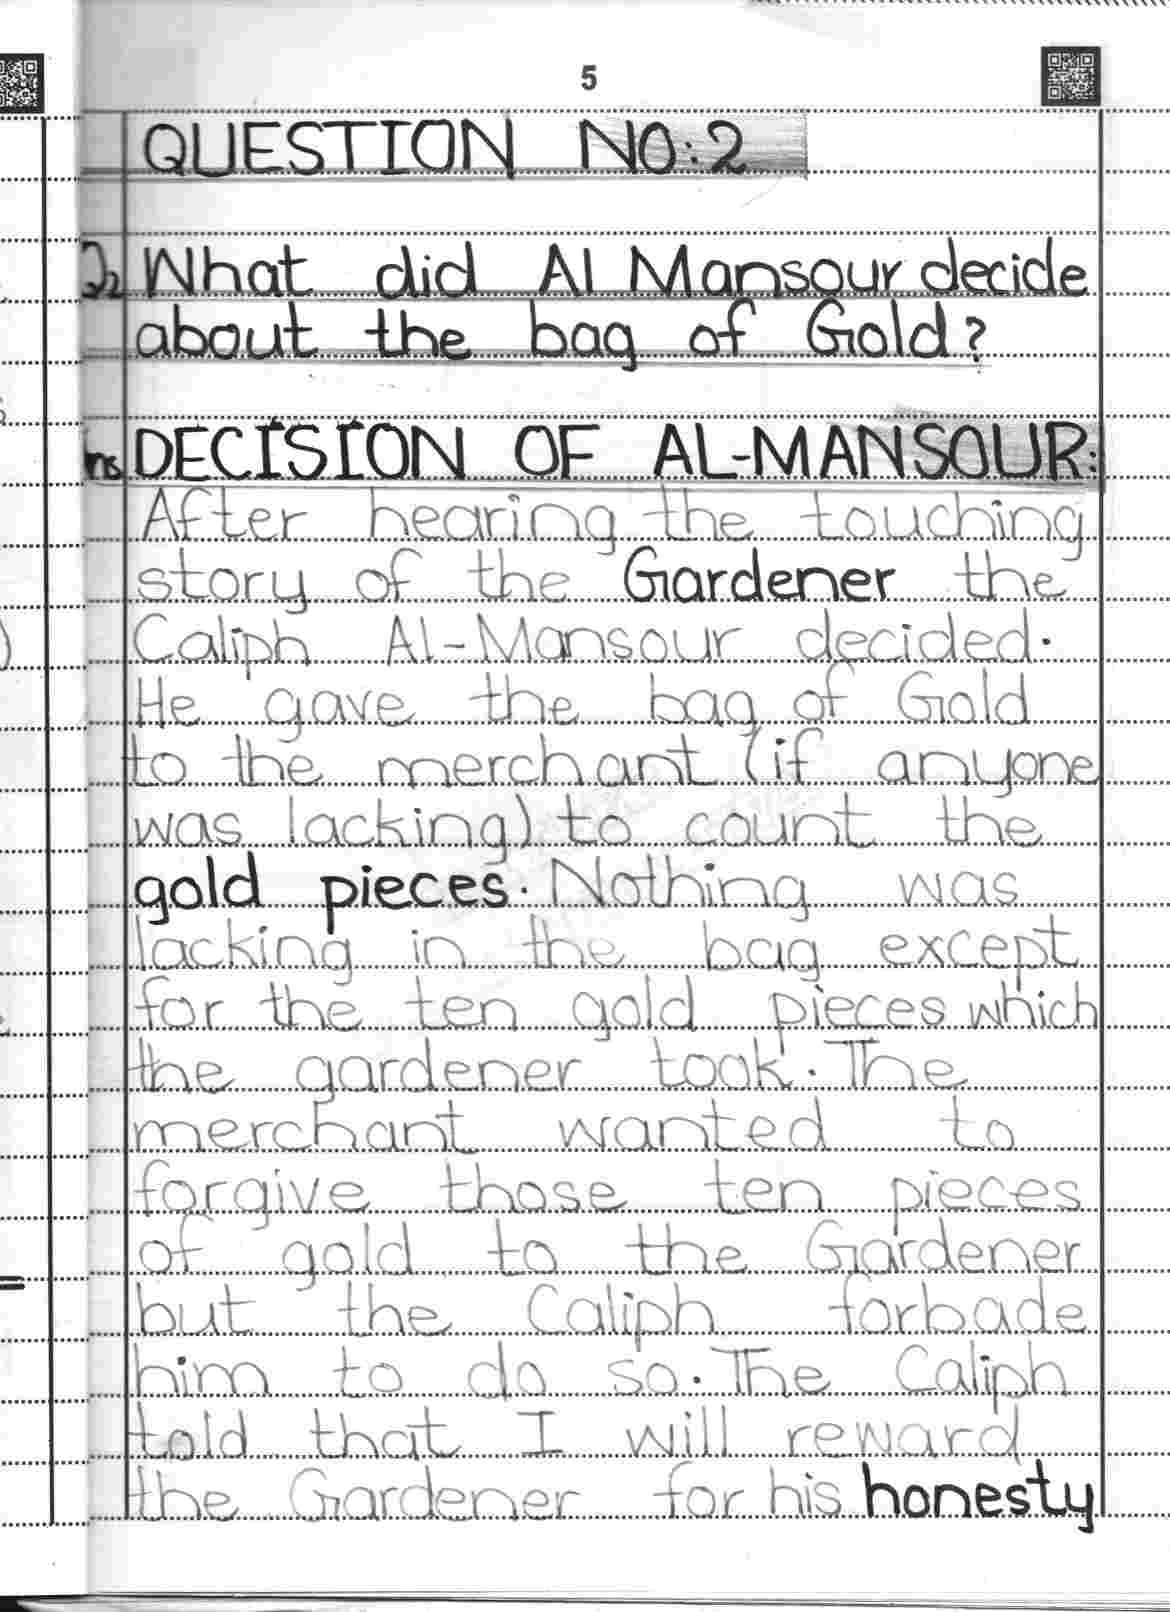 5
QUESTION NO:2
2 What did Al Mansour decide
about the bag of Gold?
ns DECISION OF AL-MANSOUR:
After hearing the touching
story of the Gardener the
Caliph Al-Mansour decided.
He gave the bag of Gold
to the merchant (if anyone
was lacking) to count the
gold pieces. Nothing was
lacking in the bag except
for the ten gold pieces which
the gardener took. The
merchant wanted to
forgive those ten pieces
of gold to the Gardener
but the Caliph forbade
him to do so. The Caliph
told that I will reward
the Gardener for his honesty